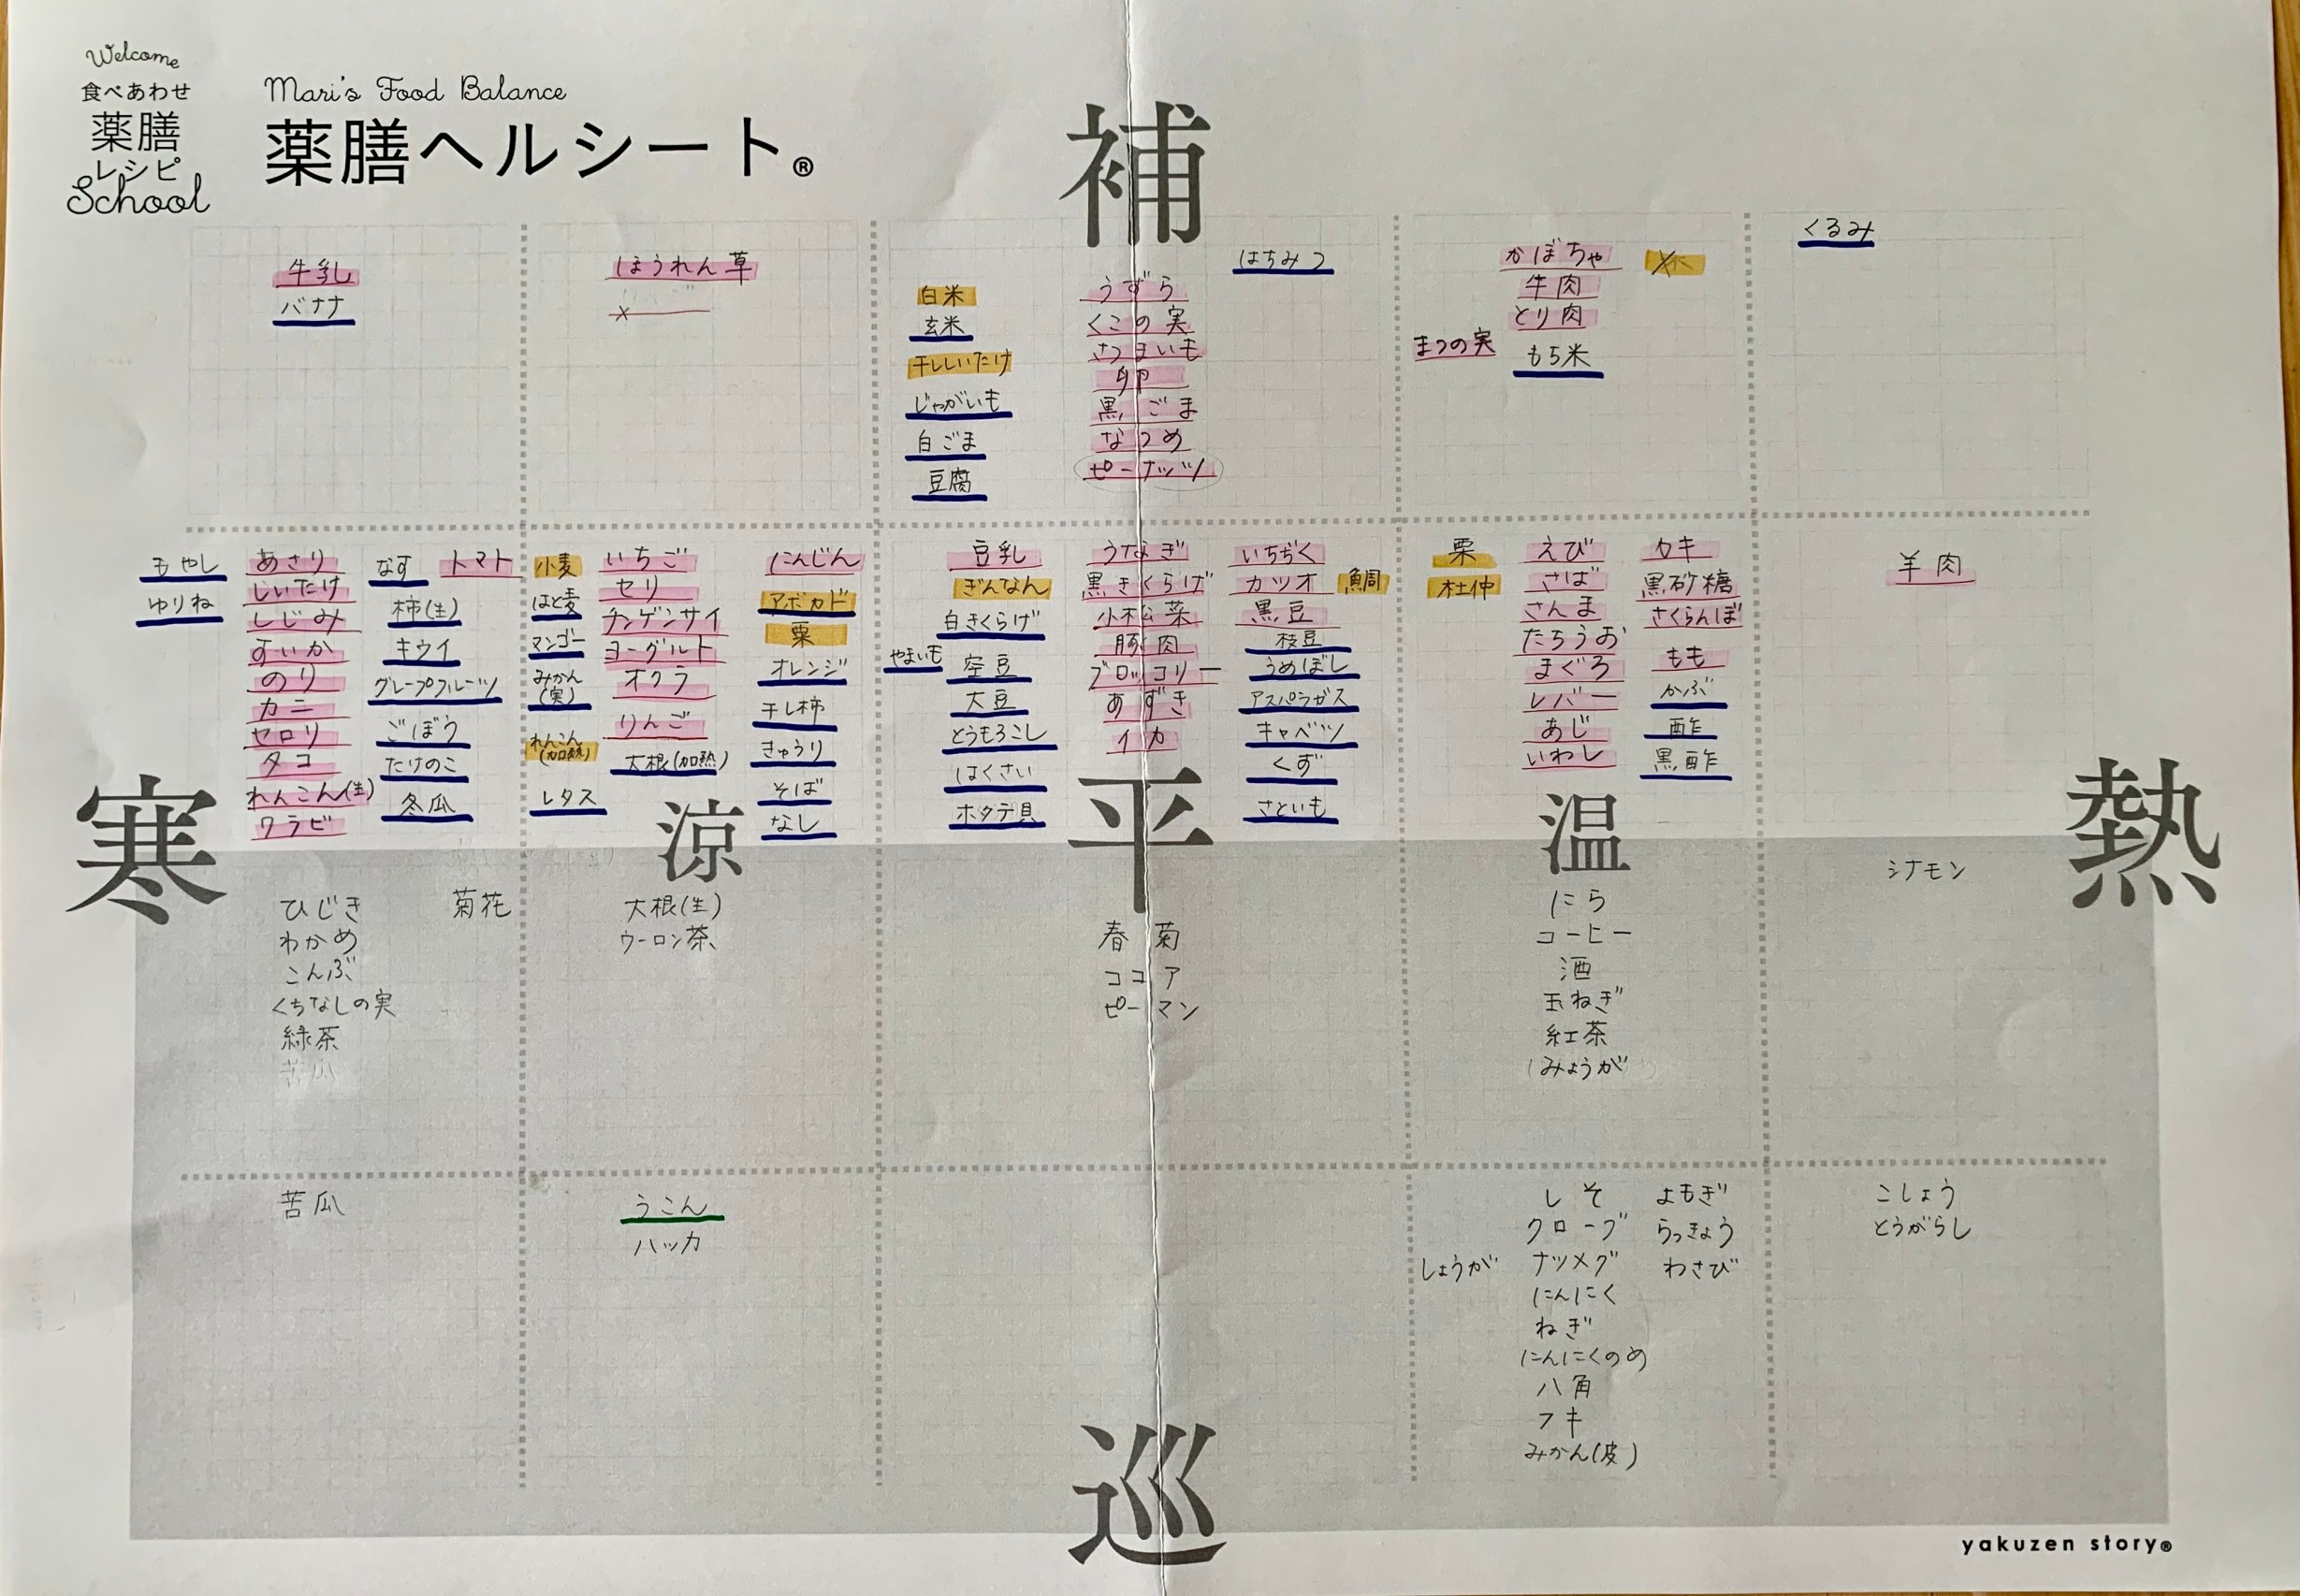 Welcome
食べあわせ
薬膳
レシピ
School
Mari's Food Balance
薬膳ヘルシート®
補
牛乳
バナナ
ほうれん草
白米
玄米
干ししいたけ
じゃがいも
白ごま
豆腐
うずら
くこの実
さつまいも
卵
黒ごま
なつめ
ピーナッツ
はちみつ
かぼちゃ
牛肉
とり肉
もち米
まつの実
くるみ
もやし
ゆりね
あさり
しいたけ
しじみ
すいか
のり
カニ
セロリ
タコ
れんこん(生)
ワラビ
なす
柿(生)
キウイ
グレープフルーツ
ごぼう
たけのこ
冬瓜
トマト
小麦
はと麦
マンゴー
みかん
(実)
れんこん
(加熱)
レタス
いちご
セリ
チンゲンサイ
ヨーグルト
オクラ
りんご
大根(加熱)
にんじん
アボカド
粟
オレンジ
干し柿
きゅうり
そば
なし
豆乳
ぎんなん
白きくらげ
やまいも
空豆
大豆
とうもろこし
はくさい
ホタテ貝
うなぎ
黒きくらげ
小松菜
豚肉
ブロッコリー
あずき
イカ
いちぢく
カツオ
鯛
黒豆
枝豆
うめぼし
アスパラガス
キャベツ
くず
さといも
栗
杜仲
えび
さば
さんま
たちうお
まぐろ
レバー
あじ
いわし
カキ
黒砂糖
さくらんぼ
もも
かぶ
酢
黒酢
羊肉
寒
涼
平
温
熱
ひじき
わかめ
こんぶ
くちなしの実
緑茶
苦瓜
菊花
大根(生)
ウーロン茶
春菊
ココア
ピーマン
にら
コーヒー
酒
玉ねぎ
紅茶
みょうが
シナモン
苦瓜
うこん
ハッカ
しょうが
しそ
クローブ
ナツメグ
にんにく
ねぎ
にんにくのめ
八角
フキ
みかん(皮)
よもぎ
らっきょう
わさび
こしょう
とうがらし
巡
yakuzen story®